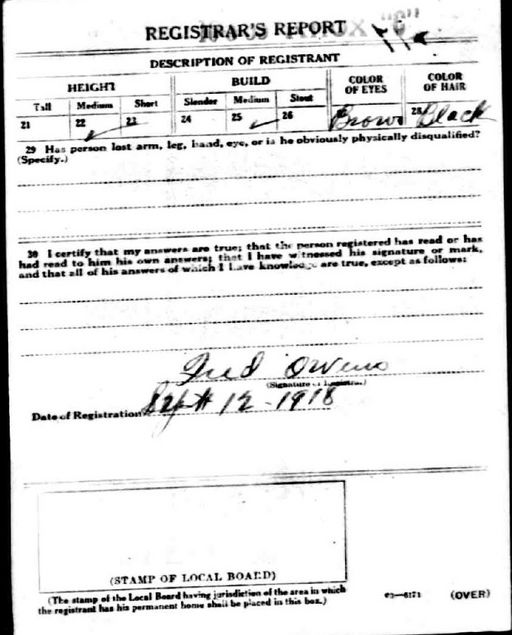 REGISTRAR'S REPORT
DESCRIPTION OF REGISTRANT
HEIGHT BUILD COLOR OF EYES COLOR OF HAIR
Tall Medium Short Slender Medium Stout
21 22 ✓ 23 24 25 ✓ 26 Brown 28 Black
29 Has person lost arm, leg, hand, eye, or is he obviously physically disqualified?
(Specify.)
30 I certify that my answers are true; that the person registered has read or has
had read to him his own answers; that I have witnessed his signature or mark,
and that all of his answers of which I have knowledge are true, except as follows:
Fred Owens
(Signature of Registrar.)
Date of Registration Sept 12 - 1918
(STAMP OF LOCAL BOARD)
(The stamp of the Local Board having jurisdiction of the area in which
the registrant has his permanent home shall be placed in this box.)
03—6171 (OVER)